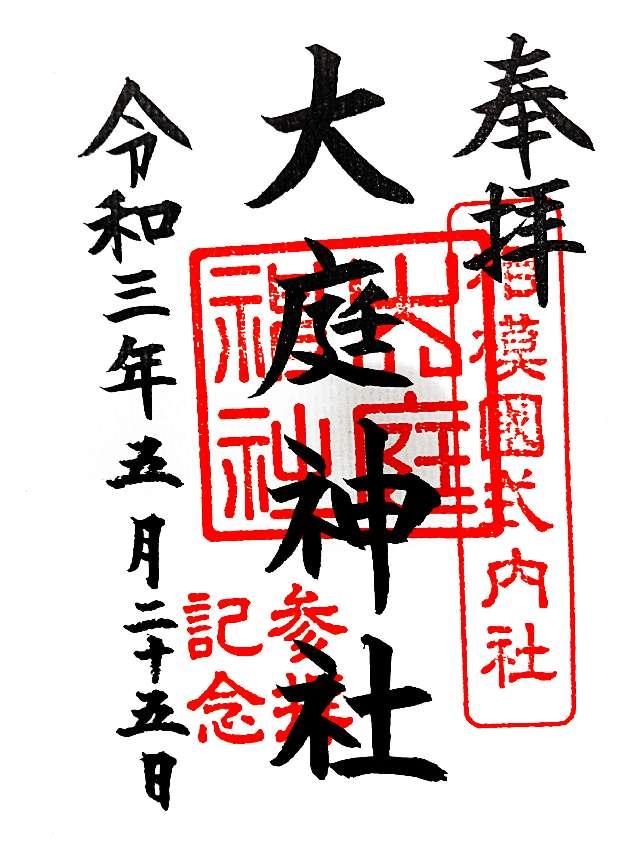 奉拝
相模國式内社
大庭神社
大庭神社
参拝記念
令和三年五月二十五日